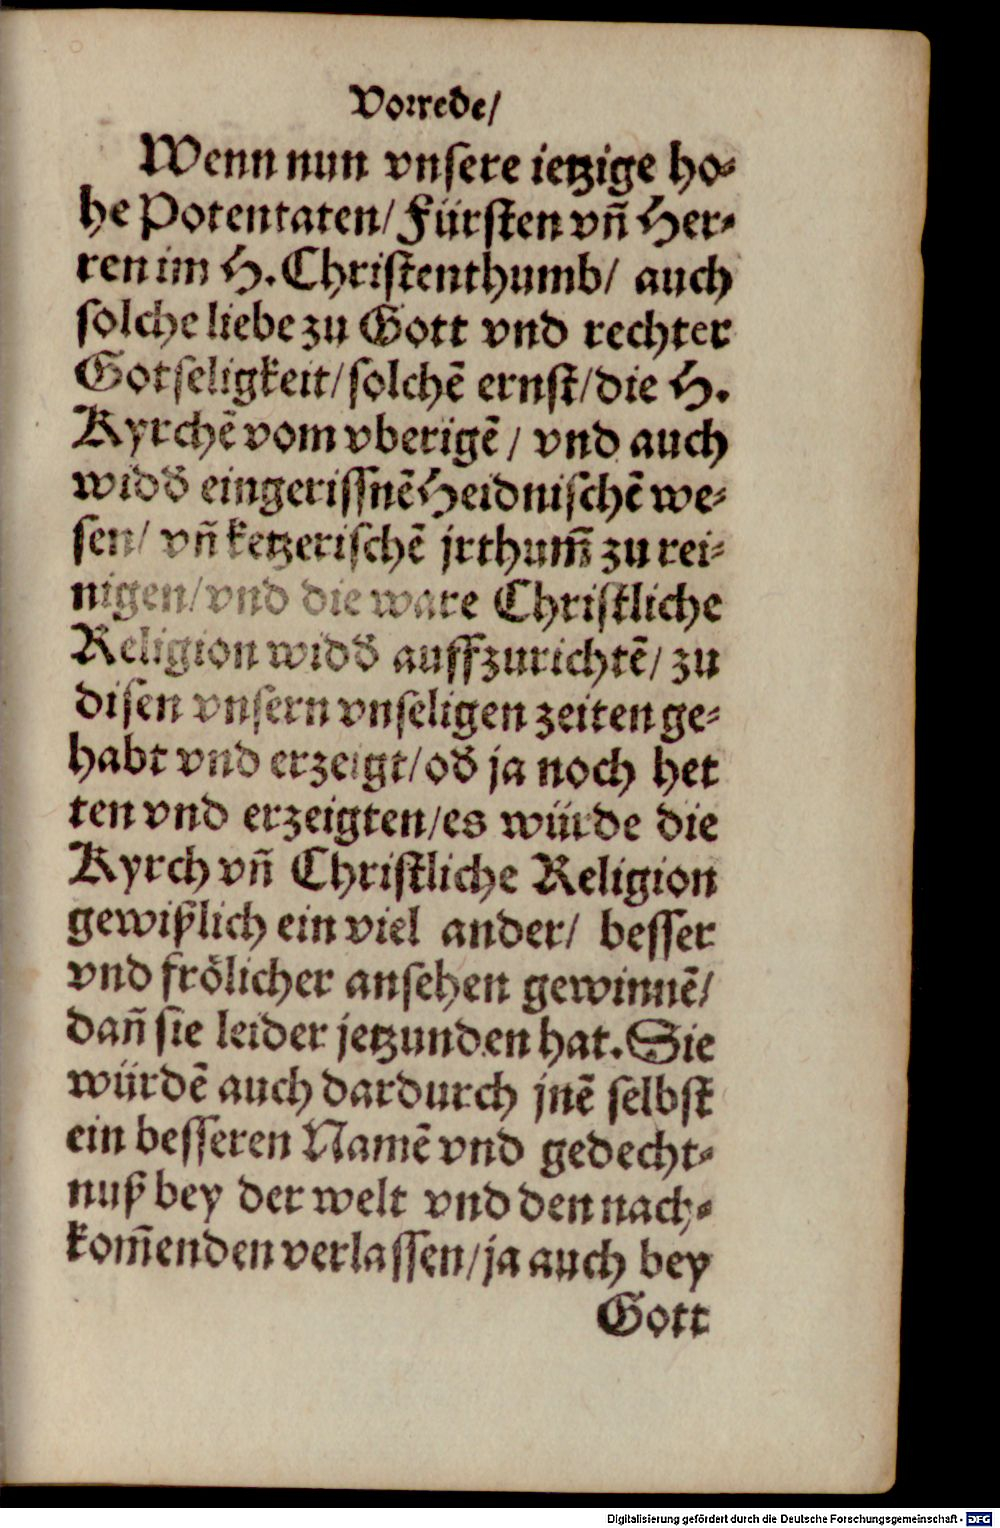 Vorrede/
Wenn nun vnsere ietzige ho-
he Potentaten/ Fürsten vñ Her-
ren im H. Christenthumb/ auch
solche liebe zu Gott vnd rechter
Gotseligkeit/ solchẽ ernst/ die H.
Kyrchẽ vom vberigẽ/ vnd auch
widď eingerissnẽ Heidnischẽ we-
sen/ vñ ketzerischẽ jrthum̃ zu rei-
nigen/ vnd die ware Christliche
Religion widď auffzurichtẽ/ zu
disen vnsern vnseligen zeiten ge-
habt vnd erzeigt/ oď ja noch het
ten vnd erzeigten/ es würde die
Kyrch vñ Christliche Religion
gewißlich ein viel ander/ besser
vnd frölicher ansehen gewinnẽ/
dañ sie leider jetzunden hat. Sie
würdẽ auch dardurch jnẽ selbst
ein besseren Namẽ vnd gedecht-
nuß bey der welt vnd den nach-
kom̃enden verlassen/ ja auch bey
Gott
Digitalisierung gefördert durch die Deutsche Forschungsgemeinschaft - DFG